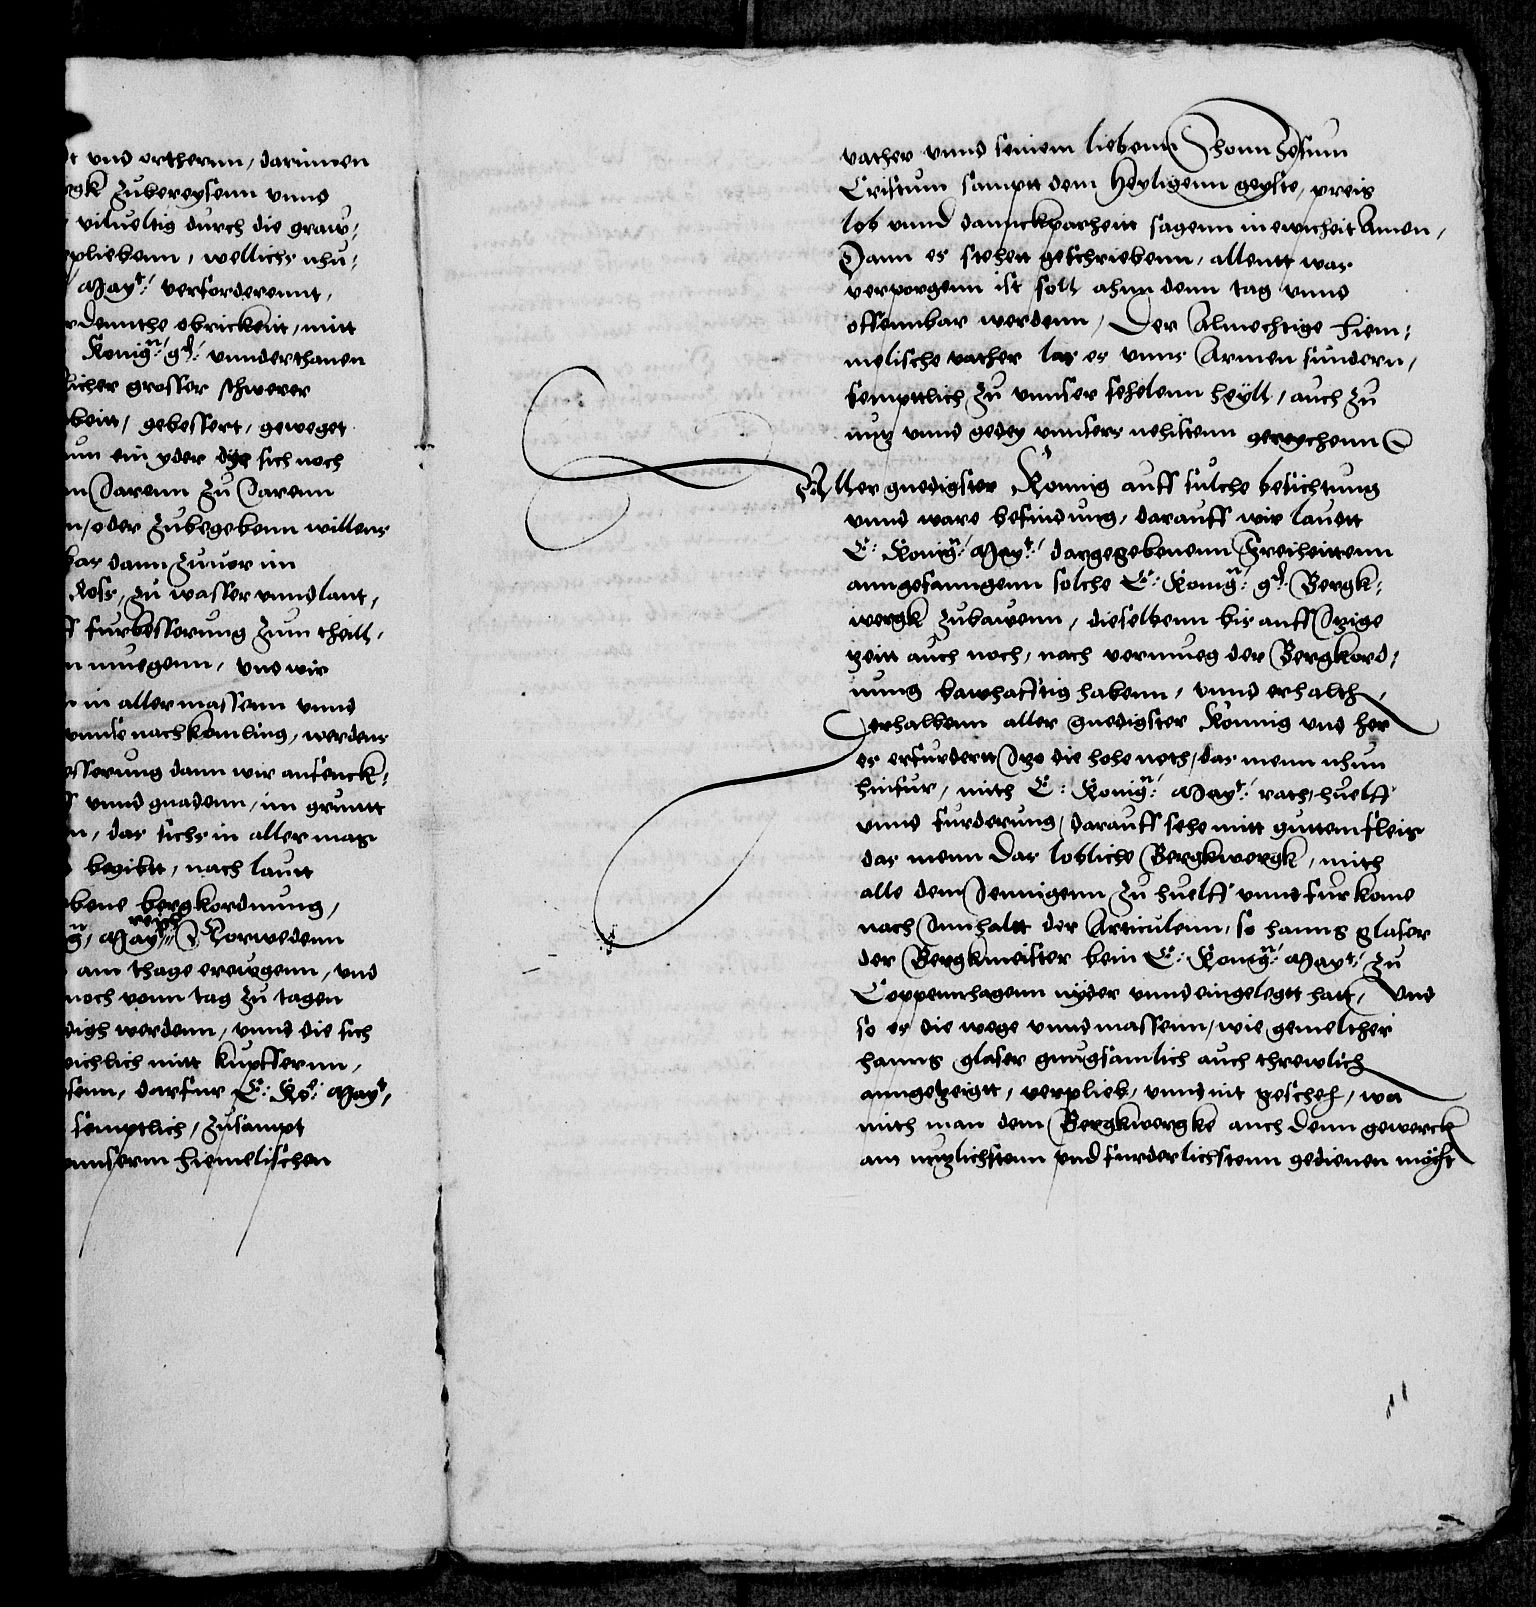 vnd orthernn, darinnen
zubereysenn vnnd
vilueltig durch die graw:
pliebenn, wellichs nhu:
Mayt: verforderennt,
dennthe obrickeitt, mitt
Konign: gd: vnnderthanen
licher grosser schwerer
beitt, gebessert, geweget
nun ein yder dye sich noch
Jarenn zu Jarenn
oder zubegebenn willens
bar dann zuuor im
Ross, zu wasser vnnd lant,
furbesserung zum theill,
muegenn, vnd wir
in aller massenn vnnd
vnnse nachkomling, werdens
esserung dann wir anfenck:
vnnd gnadenn, im gruntt
das sichs in aller mas
begibtt, nach lautt
bene bergkordnung,
reich
Mayt: Norwedenn
am thage ereugenn, vnd
noch vonn tag zu tagen
digh werdenn, vnnd die sich
reichlich mitt kupffernn,
senn, darfur E: Ko: Mayt,
semptlich, zusampt
vnnserm hiemelischen
vather vnnd seinem liebenn Shonn Jesum
Cristum sampt dem Heyligenn geyste, preis
lob vnnd danckparheitt sagenn in ewicheit Amen,
Dann es stehett geschriebenn, allentt was
verporgenn ist soll ahnn denn tag vnnd
offennbar werdenn, Der Almechtige hiem:
melische vather las es vnns Armen sundern,
sempttlich zu vnnser sehelenn heyll, auch zu
nutz vnnd gedey vnnsers nehistenn gereychenn
Aller gnedigster Konnig auff sulche besichtung
vnnd ware befindung, darauff wir lautt
E: Konign: Mayt: dargegebenenn Freiheittenn
anngefanngenn solche E: Konign: gd: Bergk:
wergk zubawenn, dieselbenn bis auff Itzige
zeitt auch noch, nach vermueg der Bergkord:
nung bawhafftig habenn, vnnd erhalth,
Derhalbenn aller gnedigster Konnig vnd her
es erfurdertt Itzo die hohe noth, das menn nhun
hinfur, mith E: Konign: Mayt: rath, huelff
vnnd furderung, darauff sehe mitt guttem fleis
das menn das lobliche Bergkwergk, mith
alle dem Jennigenn zu huelff vnnd fur kome
nach Innhaltt der Articulenn, so hanns glaser
der Bergkmeister beim E: Konign: Mayt: zu
Coppennhagenn nyder vnnd eingelegtt hatt, Vnd
so es die wege vnnd massenn, wie gemelther
hanns glaser gnugsamlich auch threwlich
anngezeigtt, verplieb, vnnd nit geschech, wa
mith man dem Bergkwergke auch denn gewerck
am nutzlichstenn vnd furderlichstenn gedienen möcht